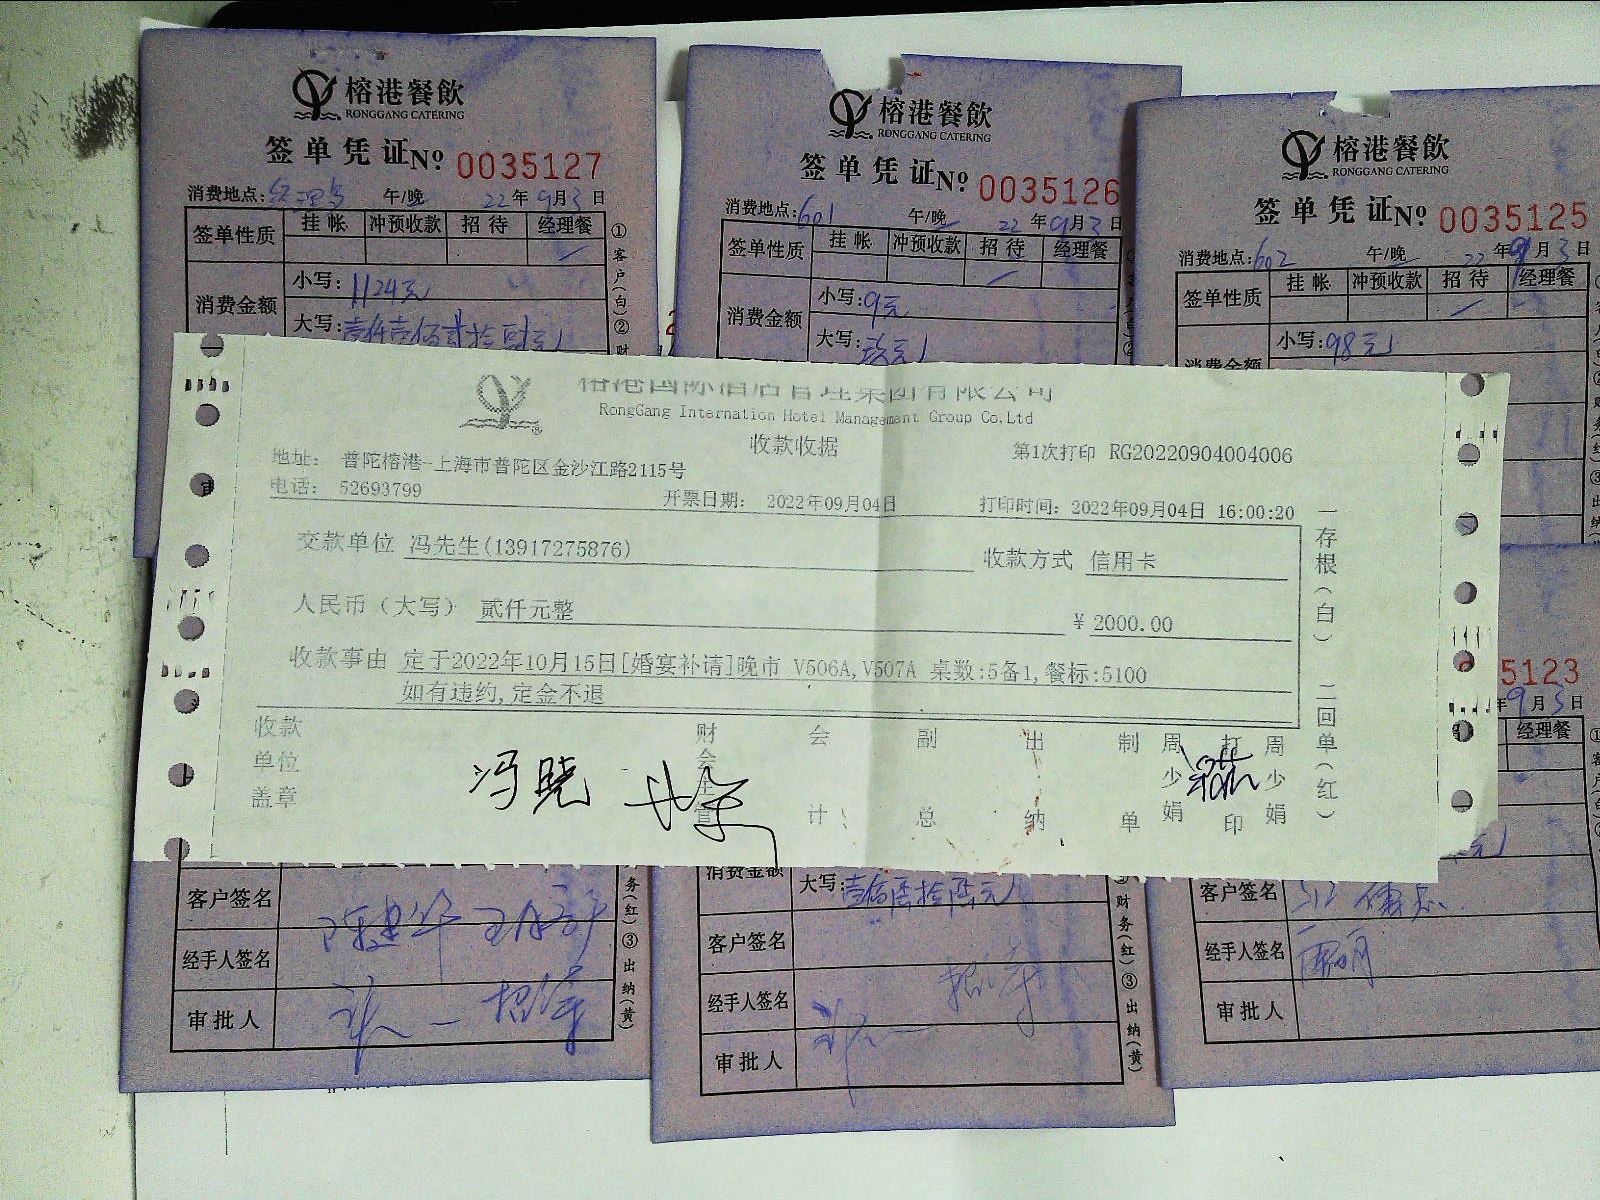 榕港餐飲
RONGGANG CATERING
签单凭证 No. 0035127
消费地点: 午/晚 22年9月3日
签单性质 挂帐 冲预收款 招待 经理餐
消费金额 小写:1124元
大写:壹仟壹佰贰拾肆元
①客户(白)②财
榕港餐飲
RONGGANG CATERING
签单凭证 No. 0035126
消费地点:601 午/晚 22年9月3日
签单性质 挂帐 冲预收款 招待 经理餐
消费金额 小写:9元
大写:玖元
榕港餐飲
RONGGANG CATERING
签单凭证 No. 0035125
消费地点:602 午/晚 22年9月3日
签单性质 挂帐 冲预收款 招待 经理餐
消费金额 小写:98元
榕港国际酒店管理集团有限公司
RongGang Internation Hotel Management Group Co,Ltd
收款收据
第1次打印 RG20220904004006
地址: 普陀榕港-上海市普陀区金沙江路2115号
电话: 52693799
开票日期: 2022年09月04日
打印时间: 2022年09月04日 16:00:20
交款单位 冯先生(13917275876)
收款方式 信用卡
人民币(大写) 贰仟元整
¥ 2000.00
收款事由 定于2022年10月15日[婚宴补请]晚市 V506A,V507A 桌数:5备1,餐标:5100
如有违约,定金不退
一存根(白) 二回单(红)
收款单位盖章
冯晓
财会主管
会计
副总
出纳
制单 周少娟
打印 周少娟
5123
年9月3日
经理餐
客户签名
经手人签名
审批人
务(红)③出纳(黄)
消费金额 大写:壹佰陆拾陆元
客户签名
经手人签名
审批人
财务(红)③出纳(黄)
客户签名
经手人签名
审批人